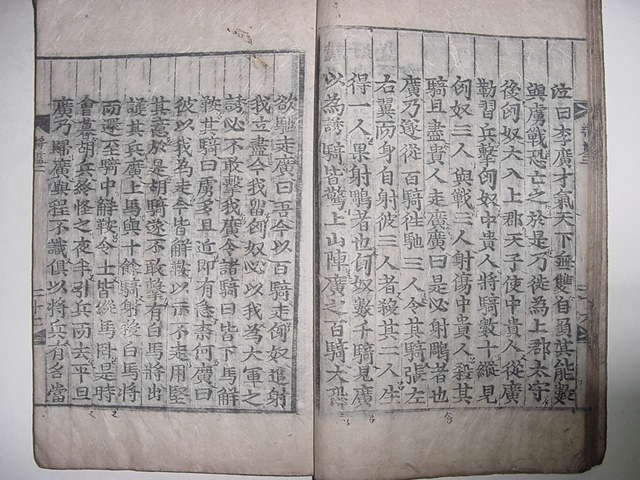 泣曰李廣才氣天下無雙自負其能數
與虜戰恐亡之於是乃徙為上郡太守
後匈奴大入上郡天子使中貴人從廣
勒習兵擊匈奴中貴人將騎數十縱見
匈奴三人與戰三人射傷中貴人殺其
騎且盡貴人走廣廣曰是必射鵰者也
廣乃遂從百騎往馳三人令其騎張左
右翼而身自射彼三人者殺其二人生
得一人果射鵰者也匈奴數千騎見廣
以為誘騎皆驚上山陣廣之百騎大恐
欲馳走廣曰吾今以百騎走匈奴追射
我立盡今我留匈奴必以我為大軍之
誘必不敢擊我廣令諸騎曰皆下馬解
鞍其騎曰虜多且近即有急奈何廣曰
彼以我為走今皆解鞍以示不走用堅
其意於是胡騎遂不敢擊有白馬將出
護其兵廣上馬與十餘騎射殺白馬將
而還至騎中解鞍令士皆縱馬臥是時
會暮胡兵終怪之夜半引兵而去平旦
廣乃歸廣與程不識俱以將兵有名當